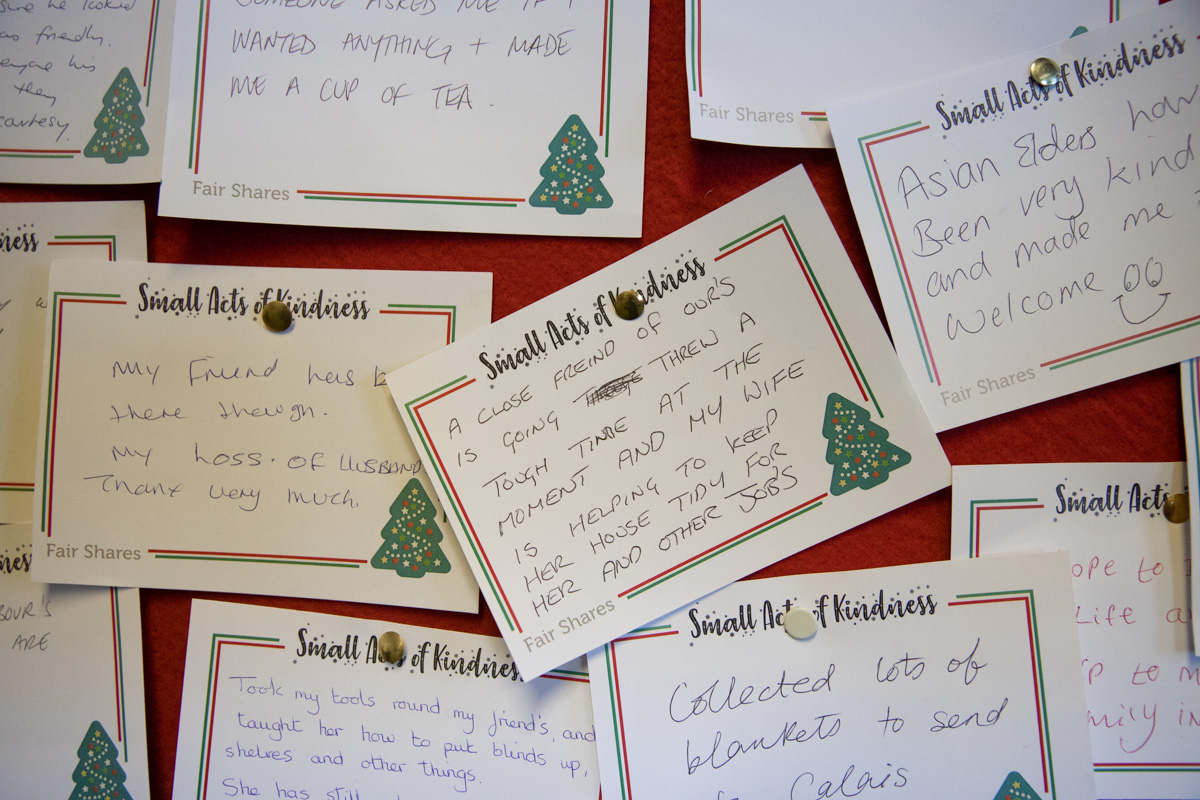 as friendly.
they
courtesy.
SOMEONE ASKED ME IF I
WANTED ANYTHING + MADE
ME A CUP OF TEA.
Fair Shares
Fair Shares
Small Acts of Kindness
Asian Elders have
Been very kind
and made me
welcome
Fair Shares
ness
Small Acts of Kindness
My Friend has b
there though.
My Loss. OF HUSBAND
Thank very much.
Fair Shares
Small Acts of Kindness
A CLOSE FREIND OF OUR'S
IS GOING THREW A
TOUGH TIME AT THE
MOMENT AND MY WIFE
IS HELPING TO KEEP
HER HOUSE TIDY FOR
HER AND OTHER JOB'S
Fair Shares
Small Acts
OPE TO
Life a
P TO M
mily in
ness
BOUR'S
ARE
Small Acts of Kindness
Took my tools round my friend's, and
taught her how to put blinds up,
shelves and other things.
She has still
Small Acts of Kindness
Collected lots of
blankets to send
Calais